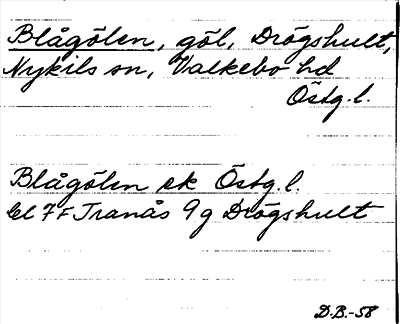 Blågölen, göl, Drögshult,
Nykils sn, Valkebo hd
Östg.l.
Blågölen ek Östg.l.
bl 7F Tranås 9g Drögshult
D.B.-58